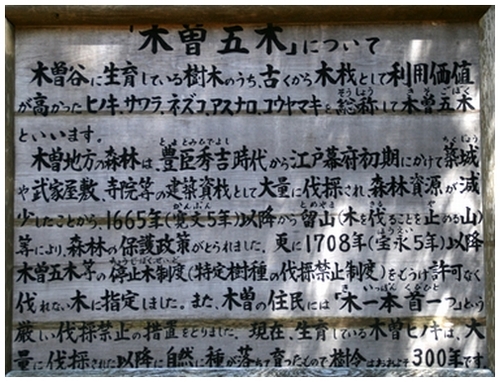 「木曽五木」について
木曽谷に生育している樹木のうち、古くから木材として利用価値
が高かったヒノキ、サワラ、ネズコ、アスナロ、コウヤマキを総称して木曽五木
といいます。
木曽地方の森林は、豊臣秀吉時代から江戸幕府初期にかけて築城
や武家屋敷、寺院等の建築資材として大量に伐採され森林資源が減
少したことから、1665年(寛文5年)以降から留山(木を伐ることを止める山)
等により、森林の保護政策がとられました。更に1708年(宝永5年)以降
木曽五木等の停止木制度(特定樹種の伐採禁止制度)をもうけ許可なく
伐れない木に指定しました。また、木曽の住民には「木一本首一つ」という
厳しい伐採禁止の措置をとりました。現在、生育している木曽ヒノキは、大
量に伐採された以降に自然に種が落ちて育ったもので樹令はおおよそ300年です。